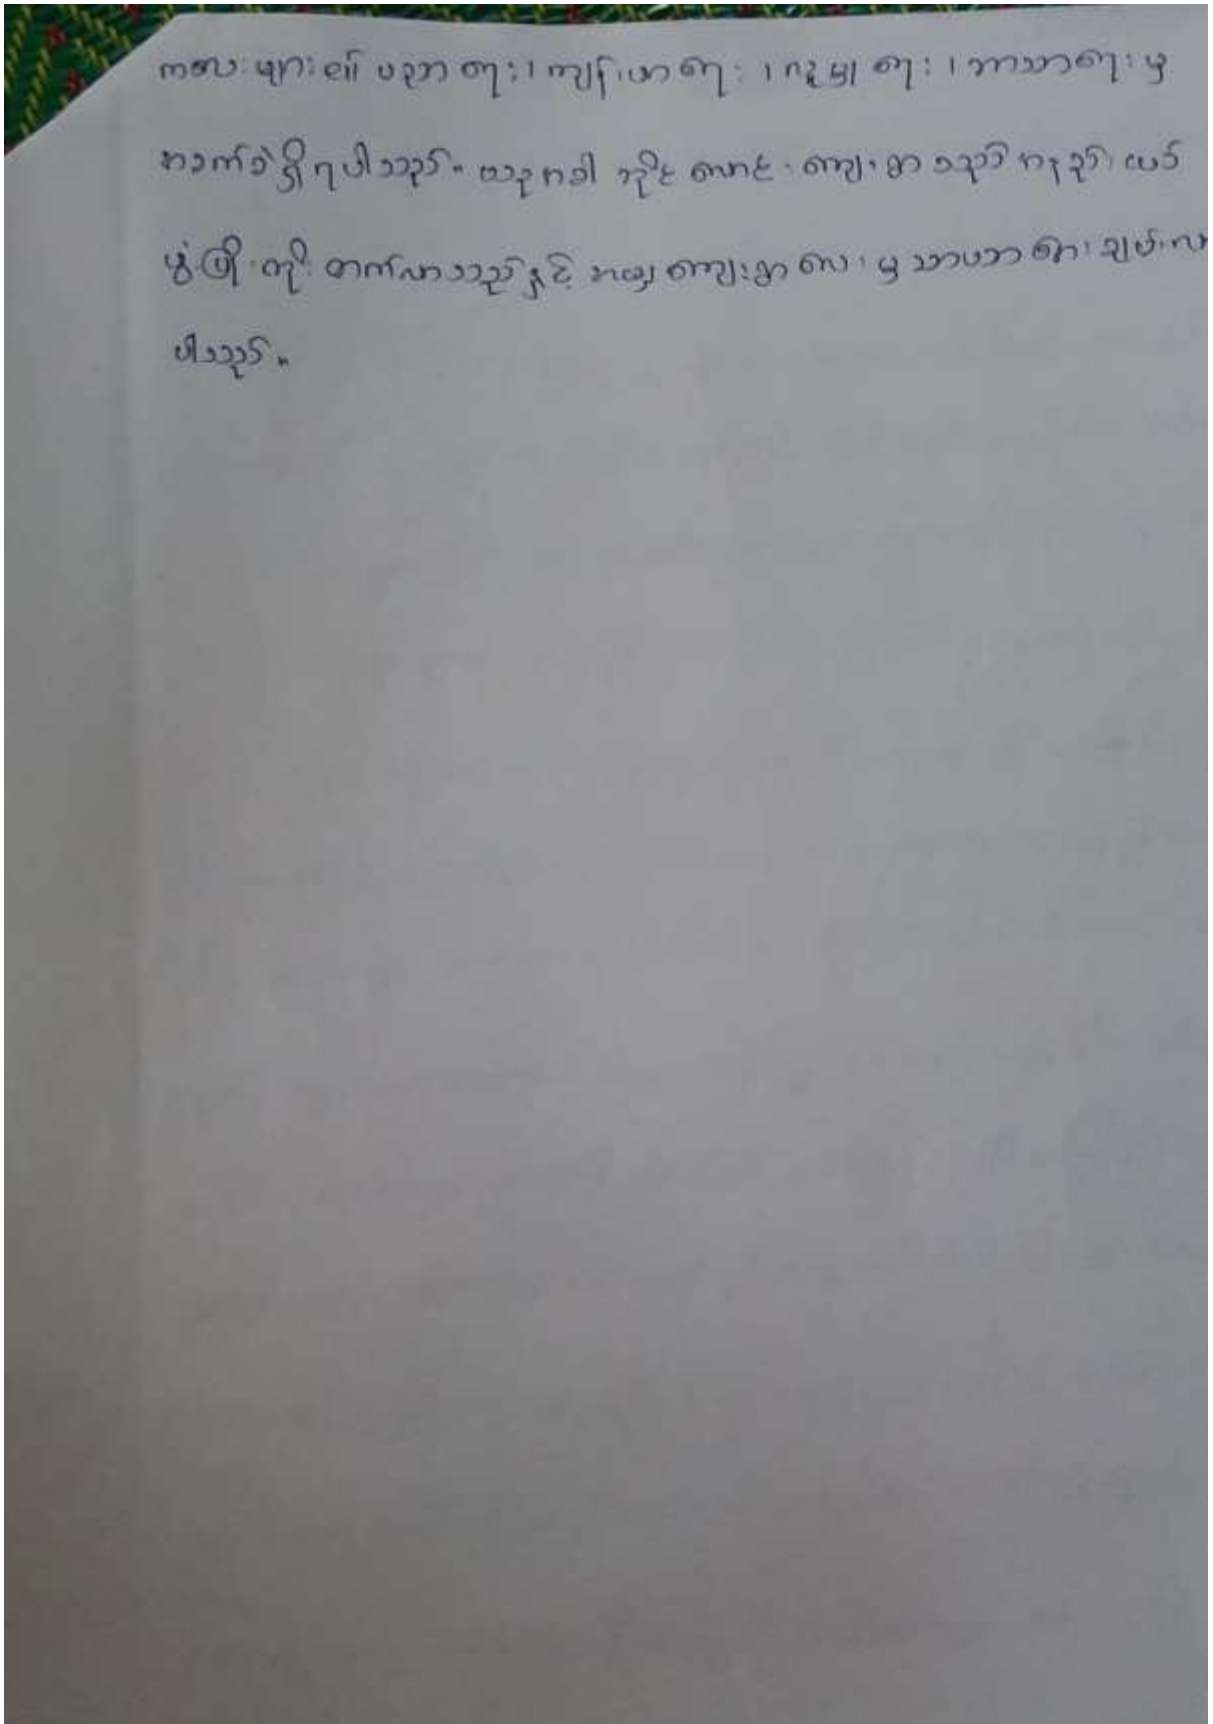 ကလေးများ၏ ပညာရေး၊ ကျန်းမာရေး၊ လူမှုရေး၊ ဘာသာရေးမှ
အခက်ခဲရှိရပါသည်။ ယခုအခါ ဘိုင် တောင် ကျေးရွာသည် ကနည်းယင်
ဖွံ့ဖြိုးတိုး တက်လာသည်နှင့် အမျှ ကျေးရွာလေးမှ သာယာ ချမ်းလာ
ပါသည်။